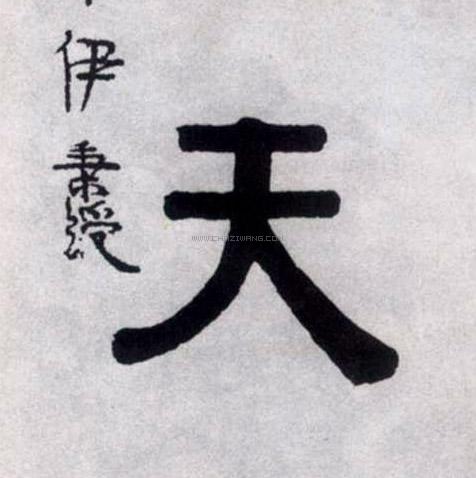 天
伊秉綬
WWW.CHAZIWANG.COM